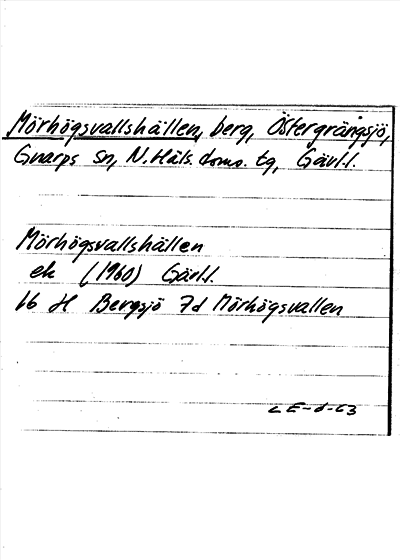 Mörhögsvallshällen, berg, Östergrängsjö,
Gnarps sn, N. Häls. doms. tg, Gävl.l.
Mörhögsvallshällen
ek (1960) Gävl.l.
16 H Bergsjö 7d Mörhögsvallen